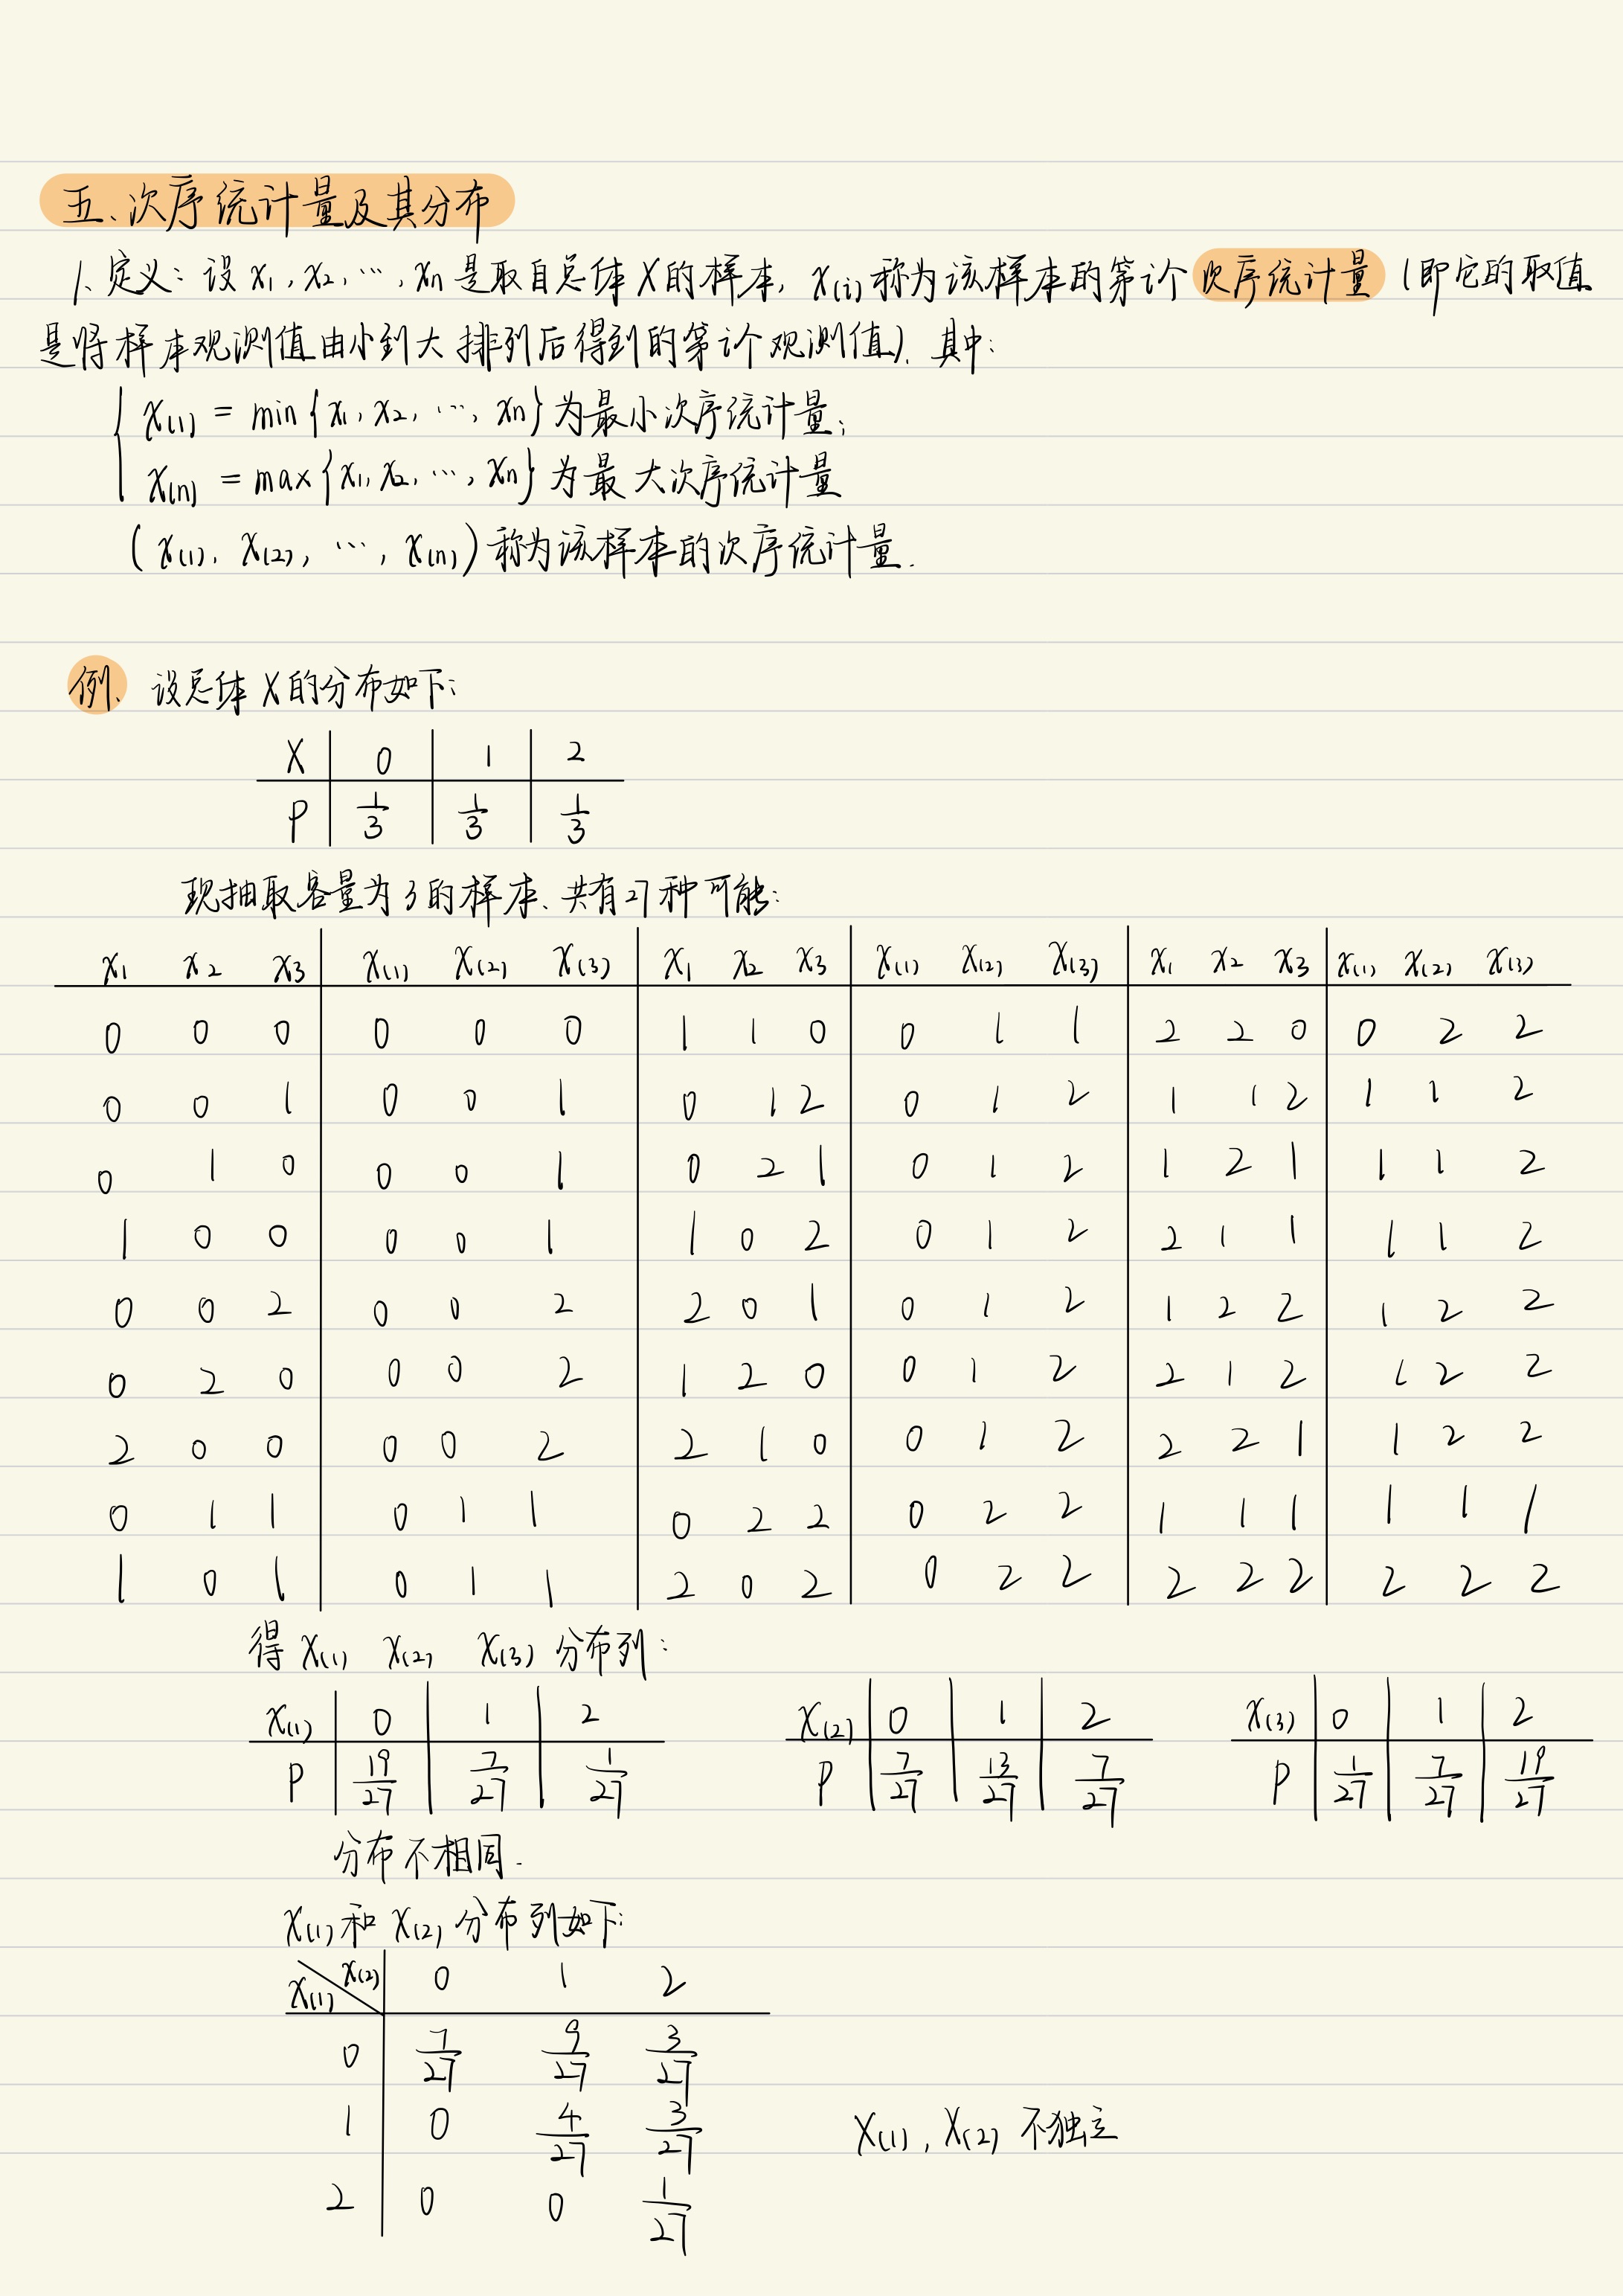 五、次序统计量及其分布
1、定义：设 x₁, x₂, …, xₙ 是取自总体 X 的样本, x₍ᵢ₎ 称为该样本的第 i 个次序统计量 (即它的取值
是将样本观测值由小到大排列后得到的第 i 个观测值). 其中:
x₍₁₎ = min{x₁, x₂, …, xₙ} 为最小次序统计量;
x₍ₙ₎ = max{x₁, x₂, …, xₙ} 为最大次序统计量
(x₍₁₎, x₍₂₎, …, x₍ₙ₎) 称为该样本的次序统计量.
例. 设总体 X 的分布如下:
X 0 1 2
P 1/3 1/3 1/3
现抽取容量为3的样本、共有27种可能:
x₁ x₂ x₃ x₍₁₎ x₍₂₎ x₍₃₎ x₁ x₂ x₃ x₍₁₎ x₍₂₎ x₍₃₎ x₁ x₂ x₃ x₍₁₎ x₍₂₎ x₍₃₎
0 0 0 0 0 0 1 1 0 0 1 1 2 2 0 0 2 2
0 0 1 0 0 1 0 1 2 0 1 2 1 1 2 1 1 2
0 1 0 0 0 1 0 2 1 0 1 2 1 2 1 1 1 2
1 0 0 0 0 1 1 0 2 0 1 2 2 1 1 1 1 2
0 0 2 0 0 2 2 0 1 0 1 2 1 2 2 1 2 2
0 2 0 0 0 2 1 2 0 0 1 2 2 1 2 1 2 2
2 0 0 0 0 2 2 1 0 0 1 2 2 2 1 1 2 2
0 1 1 0 1 1 0 2 2 0 2 2 1 1 1 1 1 1
1 0 1 0 1 1 2 0 2 0 2 2 2 2 2 2 2 2
得 x₍₁₎ x₍₂₎ x₍₃₎ 分布列:
x₍₁₎ 0 1 2 x₍₂₎ 0 1 2 x₍₃₎ 0 1 2
P 19/27 7/27 1/27 P 7/27 13/27 7/27 P 1/27 7/27 19/27
分布不相同.
x₍₁₎和 x₍₂₎ 分布列如下:
x₍₁₎ x₍₂₎ 0 1 2
0 7/27 9/27 3/27
1 0 4/27 3/27 x₍₁₎, x₍₂₎ 不独立
2 0 0 1/27